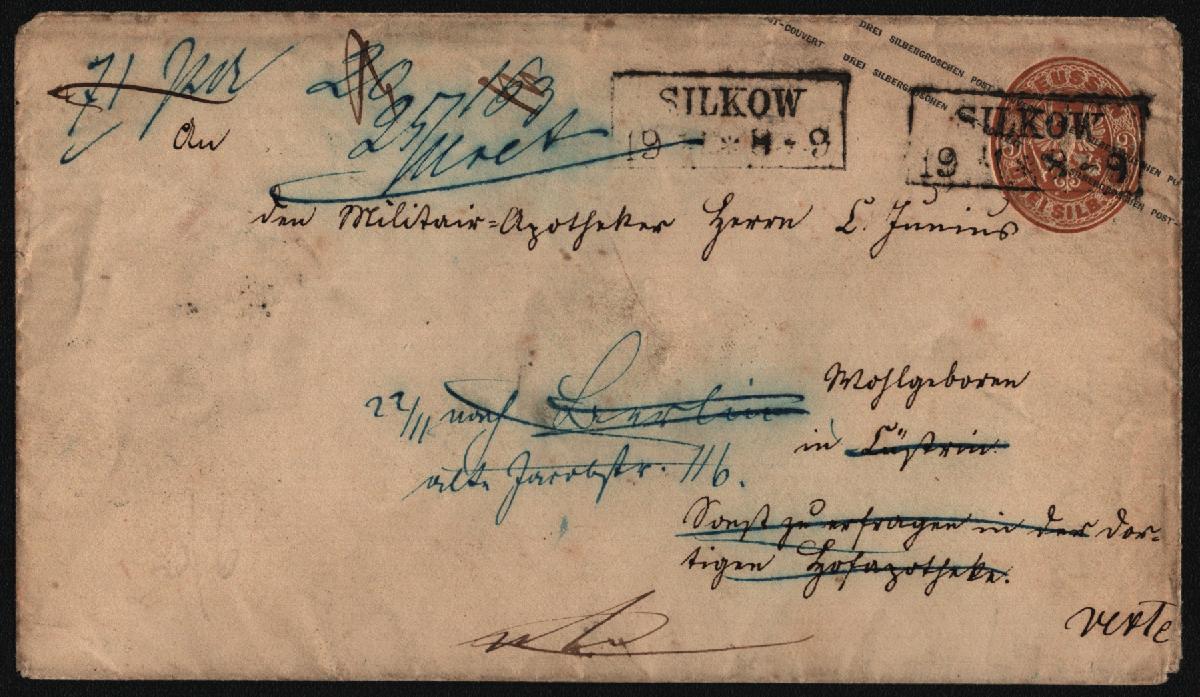 DREI SILBERGROSCHEN POST-COUVERT
DREI SILBERGROSCHEN
SILKOW
19 11 * 8 - 9
SILKOW
19 11 * 8 - 9
71
An
den Militair=Apotheker Herrn C. Junius
Wohlgeboren
in Cüstrin.
22/11 nach Berlin
alte Jacobstr. 116.
Sonst zu erfragen in der dor-
tigen Hofapotheke.
verte